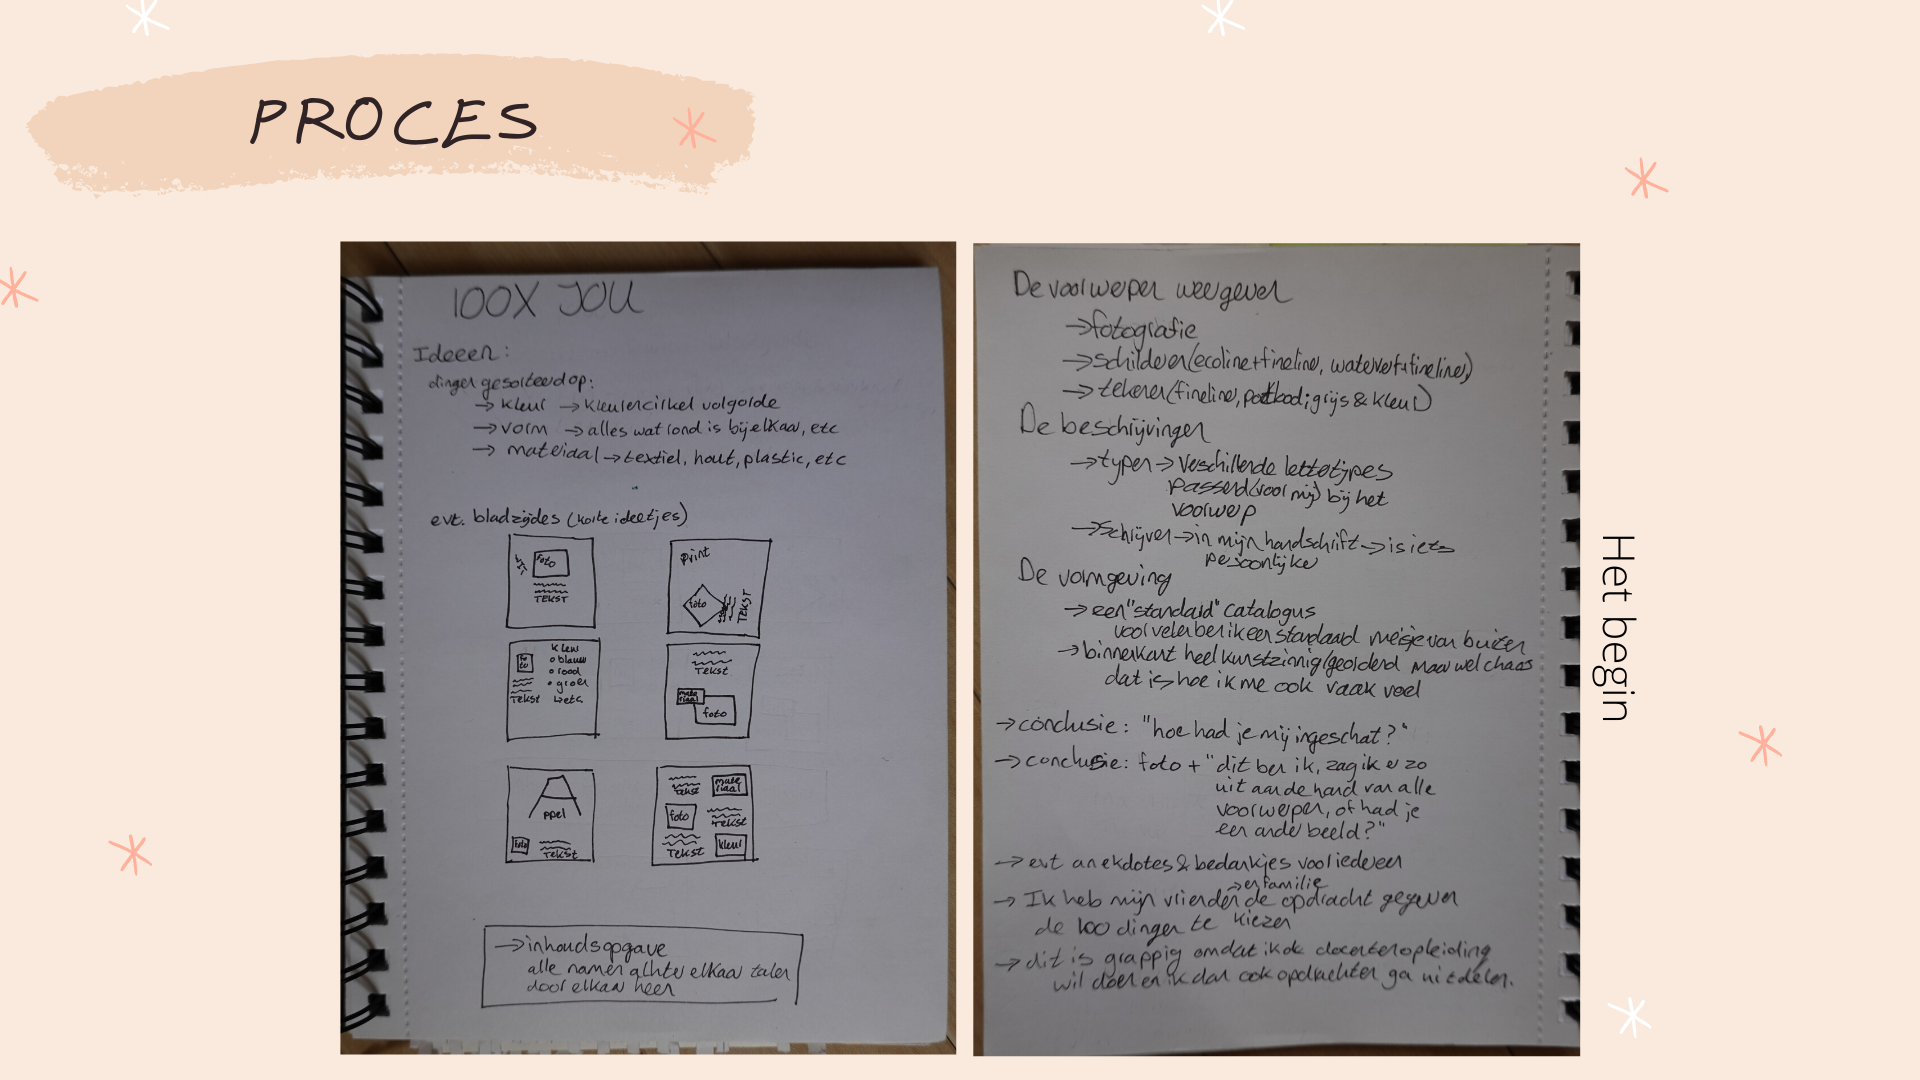 PROCES
100X JOU
Ideeen:
dingen gesorteerd op:
→ kleur → kleurencirkel volgorde
→ vorm → alles wat rond is bij elkaar, etc
→ materiaal → textiel, hout, plastic, etc
evt. bladzijdes (korte ideetjes)
foto
TEKST
print
foto
TEKST
foto
TEKST
kleur
blauw
rood
groen
etc.
TEKST
materiaal
foto
Appel
foto
TEKST
TEKST
materiaal
foto
TEKST
TEKST
kleur
→ inhoudsopgave
alle namen achter elkaar talen
door elkaar heen
De voorwerpen weergeven
→ fotografie
→ schilderen (ecoline + fineline, waterverf + fineline)
→ tekenen (fineline, potlood; grijs & kleur)
De beschrijvingen
→ typen → Verschillende lettertypes
passend (voor mij) bij het
voorwerp
→ Schrijven → in mijn handschrift → is iets
persoonlijks
De vormgeving
→ een "standaard" catalogus
voor velen ben ik een standaard meisje van buiten
→ binnenkant heel kunstzinnig/geordend maar wel chaos
dat is hoe ik me ook vaak voel
→ conclusie: "hoe had je mij ingeschat?"
→ conclusie: foto + "dit ben ik, zag ik er zo
uit aan de hand van alle
voorwerpen, of had je
een ander beeld?"
→ evt anekdotes & bedankjes voor iedereen
→ en familie
→ Ik heb mijn vrienden de opdracht gegeven
de 100 dingen te kiezen
→ dit is grappig omdat ik ook docentenopleiding
wil doen en ik dan ook opdrachten ga uitdelen.
Het begin